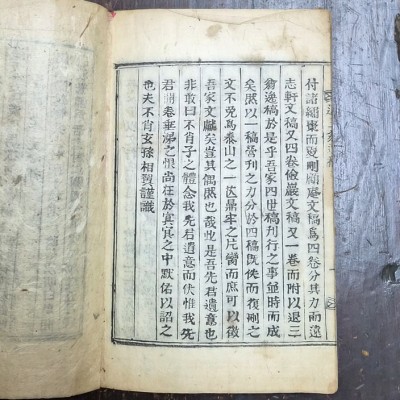 付諸繡棗而刪庵文稿爲四卷分其力而遠
志軒文稿又四卷儉巖文稿又一卷而附以退三
翁逸稿於是乎吾家四世稿刊行之事並時而成
矣然以一稿營刊之力分於四稿旣佚而復刪之
文不免爲泰山之一鼎牢之片臠而庶可以徵
吾家文獻矣豈其偶然也哉是吾先君遺意也
非敢曰不肖子之體念吾先君遺意而伏惟我先
君卷垂之恨尚在於冥冥之中默佑以詔之
也夫不肖玄孫相贊謹識